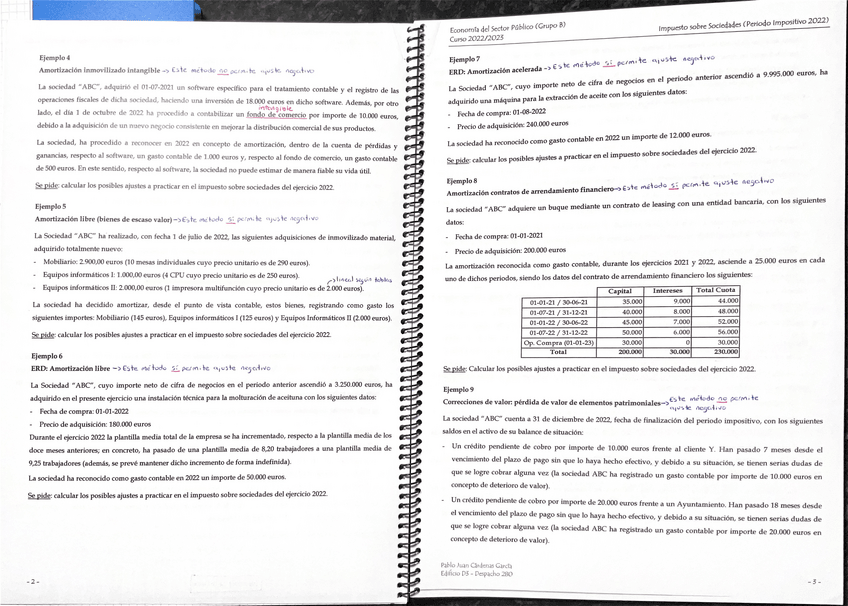 Ejemplo 4
Amortización inmovilizado intangible -> Este método no permite ajuste negativo
La sociedad "ABC", adquirió el 01-07-2021 un software específico para el tratamiento contable y el registro de las
operaciones fiscales de dicha sociedad, haciendo una inversión de 18.000 euros en dicho software. Además, por otro
intangible
lado, el día 1 de octubre de 2022 ha procedido a contabilizar un fondo de comercio por importe de 10.000 euros,
debido a la adquisición de un nuevo negocio consistente en mejorar la distribución comercial de sus productos.
La sociedad, ha procedido a reconocer en 2022 en concepto de amortización, dentro de la cuenta de pérdidas y
ganancias, respecto al software, un gasto contable de 1.000 euros y, respecto al fondo de comercio, un gasto contable
de 500 euros. En este sentido, respecto al software, la sociedad no puede estimar de manera fiable su vida útil.
Se pide: calcular los posibles ajustes a practicar en el impuesto sobre sociedades del ejercicio 2022.
Ejemplo 5
Amortización libre (bienes de escaso valor) -> Este método sí permite ajuste negativo
La Sociedad "ABC" ha realizado, con fecha 1 de julio de 2022, las siguientes adquisiciones de inmovilizado material,
adquirido totalmente nuevo:
- Mobiliario: 2.900,00 euros (10 mesas individuales cuyo precio unitario es de 290 euros).
- Equipos informáticos I: 1.000,00 euros (4 CPU cuyo precio unitario es de 250 euros).
-> lineal según tablas
- Equipos informáticos II: 2.000,00 euros (1 impresora multifunción cuyo precio unitario es de 2.000 euros).
La sociedad ha decidido amortizar, desde el punto de vista contable, estos bienes, registrando como gasto los
siguientes importes: Mobiliario (145 euros), Equipos informáticos I (125 euros) y Equipos Informáticos II (2.000 euros).
Se pide: calcular los posibles ajustes a practicar en el impuesto sobre sociedades del ejercicio 2022.
Ejemplo 6
ERD: Amortización libre -> Este método sí permite ajuste negativo
La Sociedad "ABC", cuyo importe neto de cifra de negocios en el periodo anterior ascendió a 3.250.000 euros, ha
adquirido en el presente ejercicio una instalación técnica para la molturación de aceituna con los siguientes datos:
- Fecha de compra: 01-01-2022
- Precio de adquisición: 180.000 euros
Durante el ejercicio 2022 la plantilla media total de la empresa se ha incrementado, respecto a la plantilla media de los
doce meses anteriores; en concreto, ha pasado de una plantilla media de 8,20 trabajadores a una plantilla media de
9,25 trabajadores (además, se prevé mantener dicho incremento de forma indefinida).
La sociedad ha reconocido como gasto contable en 2022 un importe de 50.000 euros.
Se pide: calcular los posibles ajustes a practicar en el impuesto sobre sociedades del ejercicio 2022.
- 2 -
Economía del Sector Público (Grupo B)
Curso 2022/2023
Impuesto sobre Sociedades (Periodo Impositivo 2022)
Ejemplo 7
ERD: Amortización acelerada -> Este método sí permite ajuste negativo
La Sociedad "ABC", cuyo importe neto de cifra de negocios en el periodo anterior ascendió a 9.995.000 euros, ha
adquirido una máquina para la extracción de aceite con los siguientes datos:
- Fecha de compra: 01-08-2022
- Precio de adquisición: 240.000 euros
La sociedad ha reconocido como gasto contable en 2022 un importe de 12.000 euros.
Se pide: calcular los posibles ajustes a practicar en el impuesto sobre sociedades del ejercicio 2022.
Ejemplo 8
Amortización contratos de arrendamiento financiero -> Este método sí permite ajuste negativo
La sociedad "ABC" adquiere un buque mediante un contrato de leasing con una entidad bancaria, con los siguientes
datos:
- Fecha de compra: 01-01-2021
- Precio de adquisición: 200.000 euros
La amortización reconocida como gasto contable, durante los ejercicios 2021 y 2022, asciende a 25.000 euros en cada
uno de dichos periodos, siendo los datos del contrato de arrendamiento financiero los siguientes:
Capital Intereses Total Cuota
01-01-21 / 30-06-21 35.000 9.000 44.000
01-07-21 / 31-12-21 40.000 8.000 48.000
01-01-22 / 30-06-22 45.000 7.000 52.000
01-07-22 / 31-12-22 50.000 6.000 56.000
Op. Compra (01-01-23) 30.000 0 30.000
Total 200.000 30.000 230.000
Se pide: Calcular los posibles ajustes a practicar en el impuesto sobre sociedades del ejercicio 2022.
Ejemplo 9
Correcciones de valor: pérdida de valor de elementos patrimoniales -> Este método no permite
ajuste negativo
La sociedad "ABC" cuenta a 31 de diciembre de 2022, fecha de finalización del periodo impositivo, con los siguientes
saldos en el activo de su balance de situación:
- Un crédito pendiente de cobro por importe de 10.000 euros frente al cliente Y. Han pasado 7 meses desde el
vencimiento del plazo de pago sin que lo haya hecho efectivo, y debido a su situación, se tienen serias dudas de
que se logre cobrar alguna vez (la sociedad ABC ha registrado un gasto contable por importe de 10.000 euros en
concepto de deterioro de valor).
- Un crédito pendiente de cobro por importe de 20.000 euros frente a un Ayuntamiento. Han pasado 18 meses desde
el vencimiento del plazo de pago sin que lo haya hecho efectivo, y debido a su situación, se tienen serias dudas de
que se logre cobrar alguna vez (la sociedad ABC ha registrado un gasto contable por importe de 20.000 euros en
concepto de deterioro de valor).
Pablo Juan Cárdenas García
Edificio D3 – Despacho 280
- 3 -